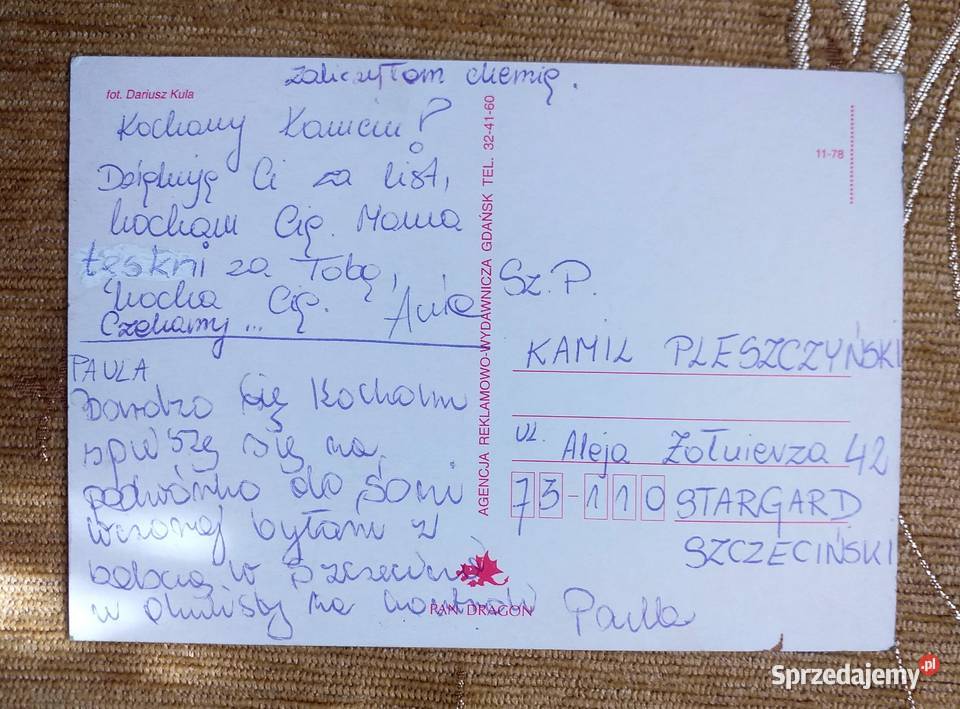 Zaliczyłam chemię.
fot. Dariusz Kula
Kochany
Dziękuję Ci za list,
kocham Cię. Mama
tęskni za Tobą,
kocha Cię. Ania
Czekamy...
PAULA
bardzo Cię Kocham
spieszę się na
podwórko do Soni
wczoraj byłam z
babcią w Szczecinie
w na Paula
AGENCJA REKLAMOWO-WYDAWNICZA GDAŃSK TEL. 32-41-60
PAN DRAGON
11-78
Sz. P.
KAMIL PLESZCZYŃSKI
UL. Aleja Żołnierza 42
73-110 STARGARD
SZCZECIŃSKI
Sprzedajemy.pl